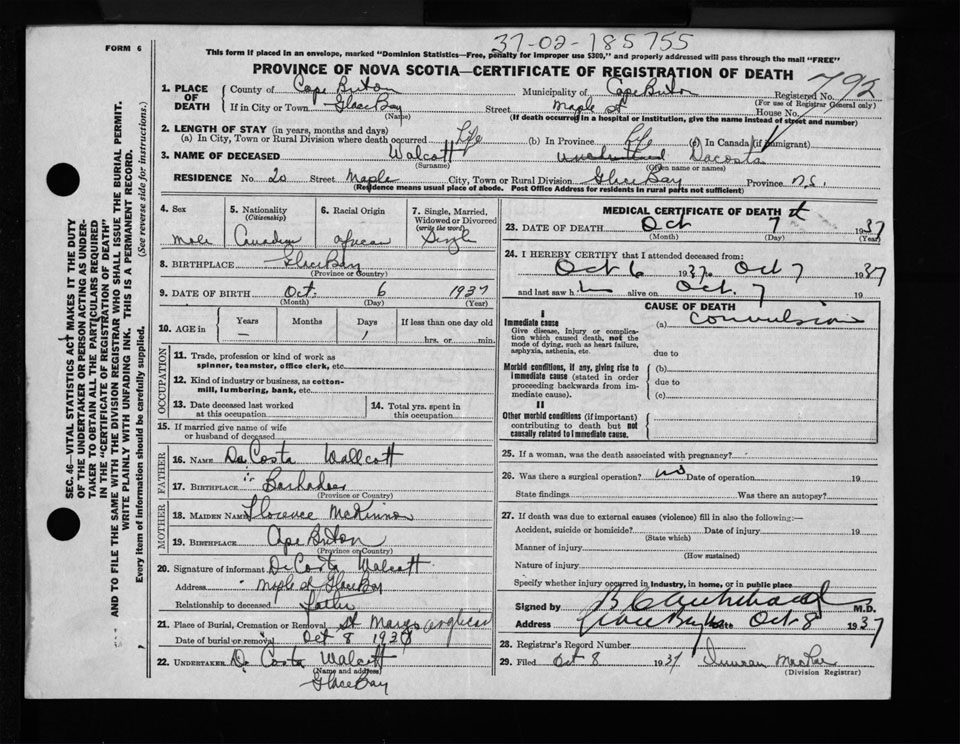 FORM 6
37-02-185755
This form if placed in an envelope, marked "Dominion Statistics—Free, penalty for improper use $300," and properly addressed will pass through the mail "FREE"
PROVINCE OF NOVA SCOTIA—CERTIFICATE OF REGISTRATION OF DEATH
792
1. PLACE OF DEATH
County of Cape Breton Municipality of Cape Breton Registered No.
(For use of Registrar General only)
If in City or Town Glace Bay Street Maple St House No.
(Name) (If death occurred in a hospital or institution, give the name instead of street and number)
2. LENGTH OF STAY (in years, months and days)
(a) In City, Town or Rural Division where death occurred Life (b) In Province Life (c) In Canada (if immigrant)
3. NAME OF DECEASED Walcott Dacosta
(Surname) (Given name or names)
RESIDENCE No. 20 Street Maple City, Town or Rural Division Glace Bay Province N.S.
(Residence means usual place of abode. Post Office Address for residents in rural parts not sufficient)
4. Sex 5. Nationality 6. Racial Origin 7. Single, Married, Widowed or Divorced
(Citizenship) (write the word)
Male Canadian African Single
8. BIRTHPLACE Glace Bay
(Province or Country)
9. DATE OF BIRTH Oct. 6 1937
(Month) (Day) (Year)
10. AGE in Years Months Days If less than one day old
— 1 hrs. or min.
OCCUPATION
11. Trade, profession or kind of work as spinner, teamster, office clerk, etc.
12. Kind of industry or business, as cotton-mill, lumbering, bank, etc.
13. Date deceased last worked at this occupation
14. Total yrs. spent in this occupation
15. If married give name of wife or husband of deceased
FATHER
16. NAME Da Costa Wallcott
17. BIRTHPLACE Barbadoes
(Province or Country)
MOTHER
18. MAIDEN NAME Florence McKinnon
19. BIRTHPLACE Cape Breton
(Province or Country)
20. Signature of informant DaCosta Walcott
Address Maple St Glace Bay
Relationship to deceased Father
21. Place of Burial, Cremation or Removal St Marys Anglican
Date of burial or removal Oct 8 1937
22. UNDERTAKER Da Costa Walcott
(Name and address)
Glace Bay
MEDICAL CERTIFICATE OF DEATH
23. DATE OF DEATH Oct 7 1937
(Month) (Day) (Year)
24. I HEREBY CERTIFY that I attended deceased from:
Oct 6 1937 to Oct 7 1937
and last saw him alive on Oct. 7 19
CAUSE OF DEATH
I
Immediate cause (a) Convulsions
Give disease, injury or complication which caused death, not the mode of dying, such as heart failure, asphyxia, asthenia, etc.
due to
Morbid conditions, if any, giving rise to immediate cause (stated in order proceeding backwards from immediate cause).
(b)
due to
(c)
II
Other morbid conditions (if important) contributing to death but not causally related to immediate cause.
25. If a woman, was the death associated with pregnancy?
26. Was there a surgical operation? no Date of operation 19
State findings Was there an autopsy?
27. If death was due to external causes (violence) fill in also the following:—
Accident, suicide or homicide? Date of injury 19
(State which)
Manner of injury
(How sustained)
Nature of injury
Specify whether injury occurred in industry, in home, or in public place
Signed by M.D.
Address Glace Bay Date Oct 8 1937
28. Registrar's Record Number
29. Filed Oct 8 1937 Duncan MacRae
(Division Registrar)
SEC. 46—VITAL STATISTICS ACT MAKES IT THE DUTY
OF THE UNDERTAKER OR PERSON ACTING AS UNDER-
TAKER TO OBTAIN ALL THE PARTICULARS REQUIRED
IN THE "CERTIFICATE OF REGISTRATION OF DEATH"
AND TO FILE THE SAME WITH THE DIVISION REGISTRAR WHO SHALL ISSUE THE BURIAL PERMIT.
WRITE PLAINLY WITH UNFADING INK. THIS IS A PERMANENT RECORD.
Every item of information should be carefully supplied. (See reverse side for instructions.)